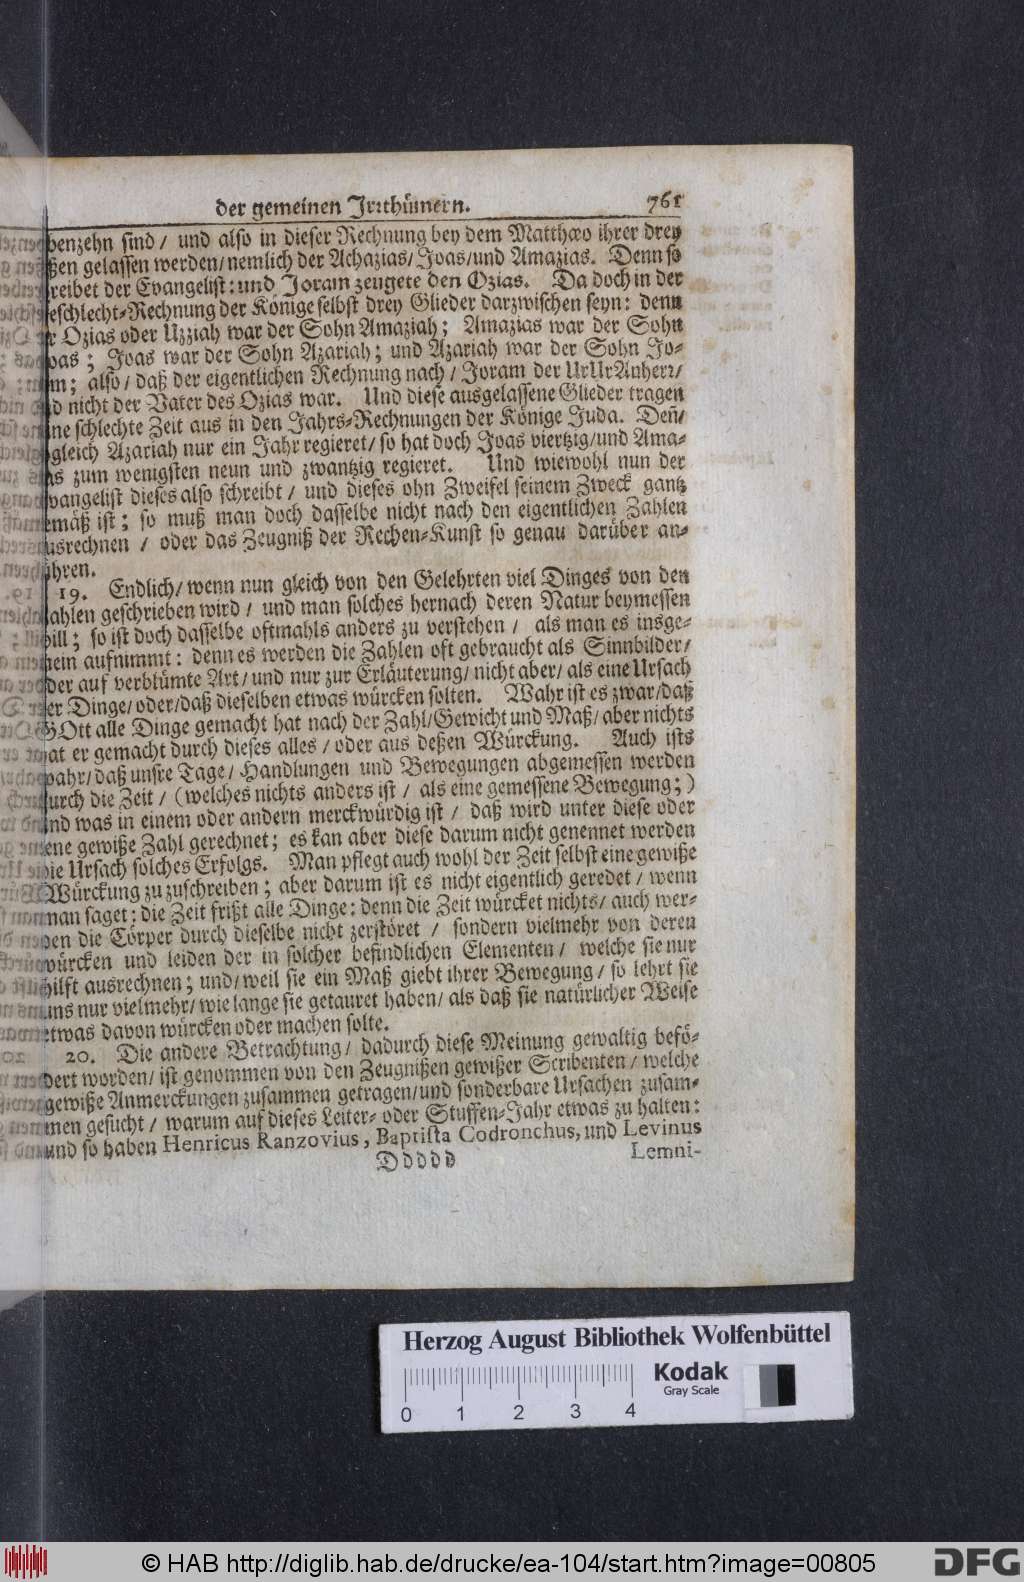 der gemeinen Jrrthümern. 761
benzehn sind/ und also in dieser Rechnung bey dem Matthæo ihrer drey
ßen gelassen werden/nemlich der Achazias/Joas/und Amazias. Denn so
reibet der Evangelist: und Joram zeugete den Ozias. Da doch in der
eschlecht-Rechnung der Könige selbst drey Glieder darzwischen seyn: denn
r Ozias oder Uzziah war der Sohn Amaziah; Amazias war der Sohn
oas; Joas war der Sohn Azariah; und Azariah war der Sohn Jo-
m; also/ daß der eigentlichen Rechnung nach/ Joram der UrUrAnherr/
d nicht der Vater des Ozias war. Und diese ausgelassene Glieder tragen
ne schlechte Zeit aus in den Jahrs-Rechnungen der Könige Juda. Deñ/
gleich Azariah nur ein Jahr regieret/ so hat doch Joas viertzig/und Ama-
s zum wenigsten neun und zwantzig regieret. Und wiewohl nun der
vangelist dieses also schreibt/ und dieses ohn Zweifel seinem Zweck gantz
emäß ist; so muß man doch dasselbe nicht nach den eigentlichen Zahlen
usrechnen/ oder das Zeugniß der Rechen-Kunst so genau darüber an-
hren.
19. Endlich/ wenn nun gleich von den Gelehrten viel Dinges von den
ahlen geschrieben wird/ und man solches hernach deren Natur beymessen
ill; so ist doch dasselbe oftmahls anders zu verstehen/ als man es insge-
ein aufnimmt: denn es werden die Zahlen oft gebraucht als Sinnbilder/
der auf verblümte Art/ und nur zur Erläuterung/ nicht aber/ als eine Ursach
er Dinge/ oder/daß dieselben etwas würcken solten. Wahr ist es zwar/daß
GOtt alle Dinge gemacht hat nach der Zahl/Gewicht und Maß/ aber nichts
at er gemacht durch dieses alles/ oder aus deßen Würckung. Auch ists
wahr/daß unsre Tage/ Handlungen und Bewegungen abgemessen werden
urch die Zeit/ (welches nichts anders ist/ als eine gemessene Bewegung;)
nd was in einem oder andern merckwürdig ist/ daß wird unter diese oder
ene gewiße Zahl gerechnet; es kan aber diese darum nicht genennet werden
ie Ursach solches Erfolgs. Man pflegt auch wohl der Zeit selbst eine gewiße
Würckung zu zuschreiben; aber darum ist es nicht eigentlich geredet/ wenn
man saget: die Zeit frißt alle Dinge: denn die Zeit würcket nichts/ auch wer-
den die Cörper durch dieselbe nicht zerstöret/ sondern vielmehr von deren
würcken und leiden der in solcher befindlichen Elementen/ welche sie nur
hilft ausrechnen; und/ weil sie ein Maß giebt ihrer Bewegung/ so lehrt sie
uns nur vielmehr/ wie lange sie getauret haben/ als daß sie natürlicher Weise
etwas davon würcken oder machen solte.
20. Die andere Betrachtung/ dadurch diese Meinung gewaltig beför-
dert worden/ ist genommen von den Zeugnißen gewißer Scribenten/ welche
gewiße Anmerckungen zusammen getragen/und sonderbare Ursachen zusam-
men gesucht/ warum auf dieses Leiter- oder Stuffen-Jahr etwas zu halten:
und so haben Henricus Ranzovius, Baptista Codronchus, und Levinus
Ddddd Lemni-
Herzog August Bibliothek Wolfenbüttel
Kodak
Gray Scale
0 1 2 3 4
© HAB http://diglib.hab.de/drucke/ea-104/start.htm?image=00805
DFG